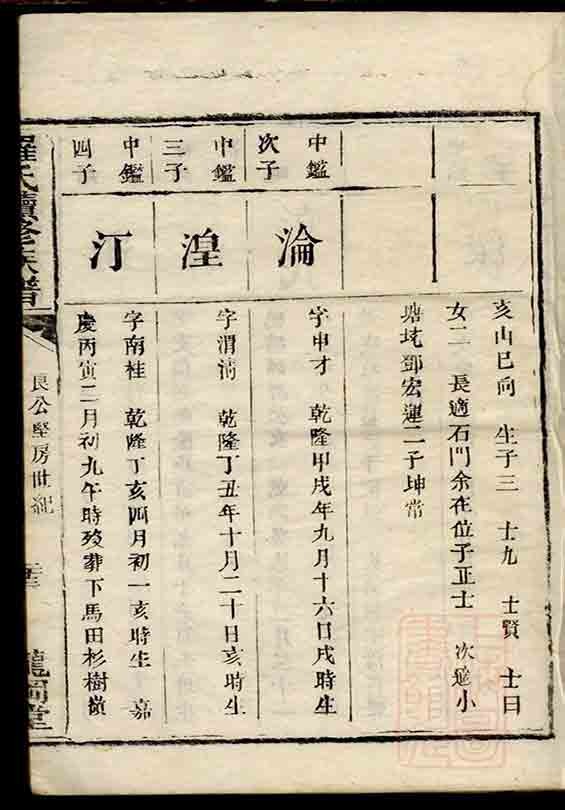 亥山巳向　生子三　士九　士賢　士日
女二　長適石門余在位子正士　次適小
塘坑鄧宏運二子坤常
中鑑次子
淪
字申才　乾隆甲戌年九月十六日戌時生
中鑑三子
湟
字渭清　乾隆丁丑年十月二十日亥時生
中鑑四子
汀
字南桂　乾隆丁亥四月初一亥時生　嘉
慶丙寅二月初九午時歿葬下馬田杉樹嶺
羅氏續修族譜
良公堅房世紀